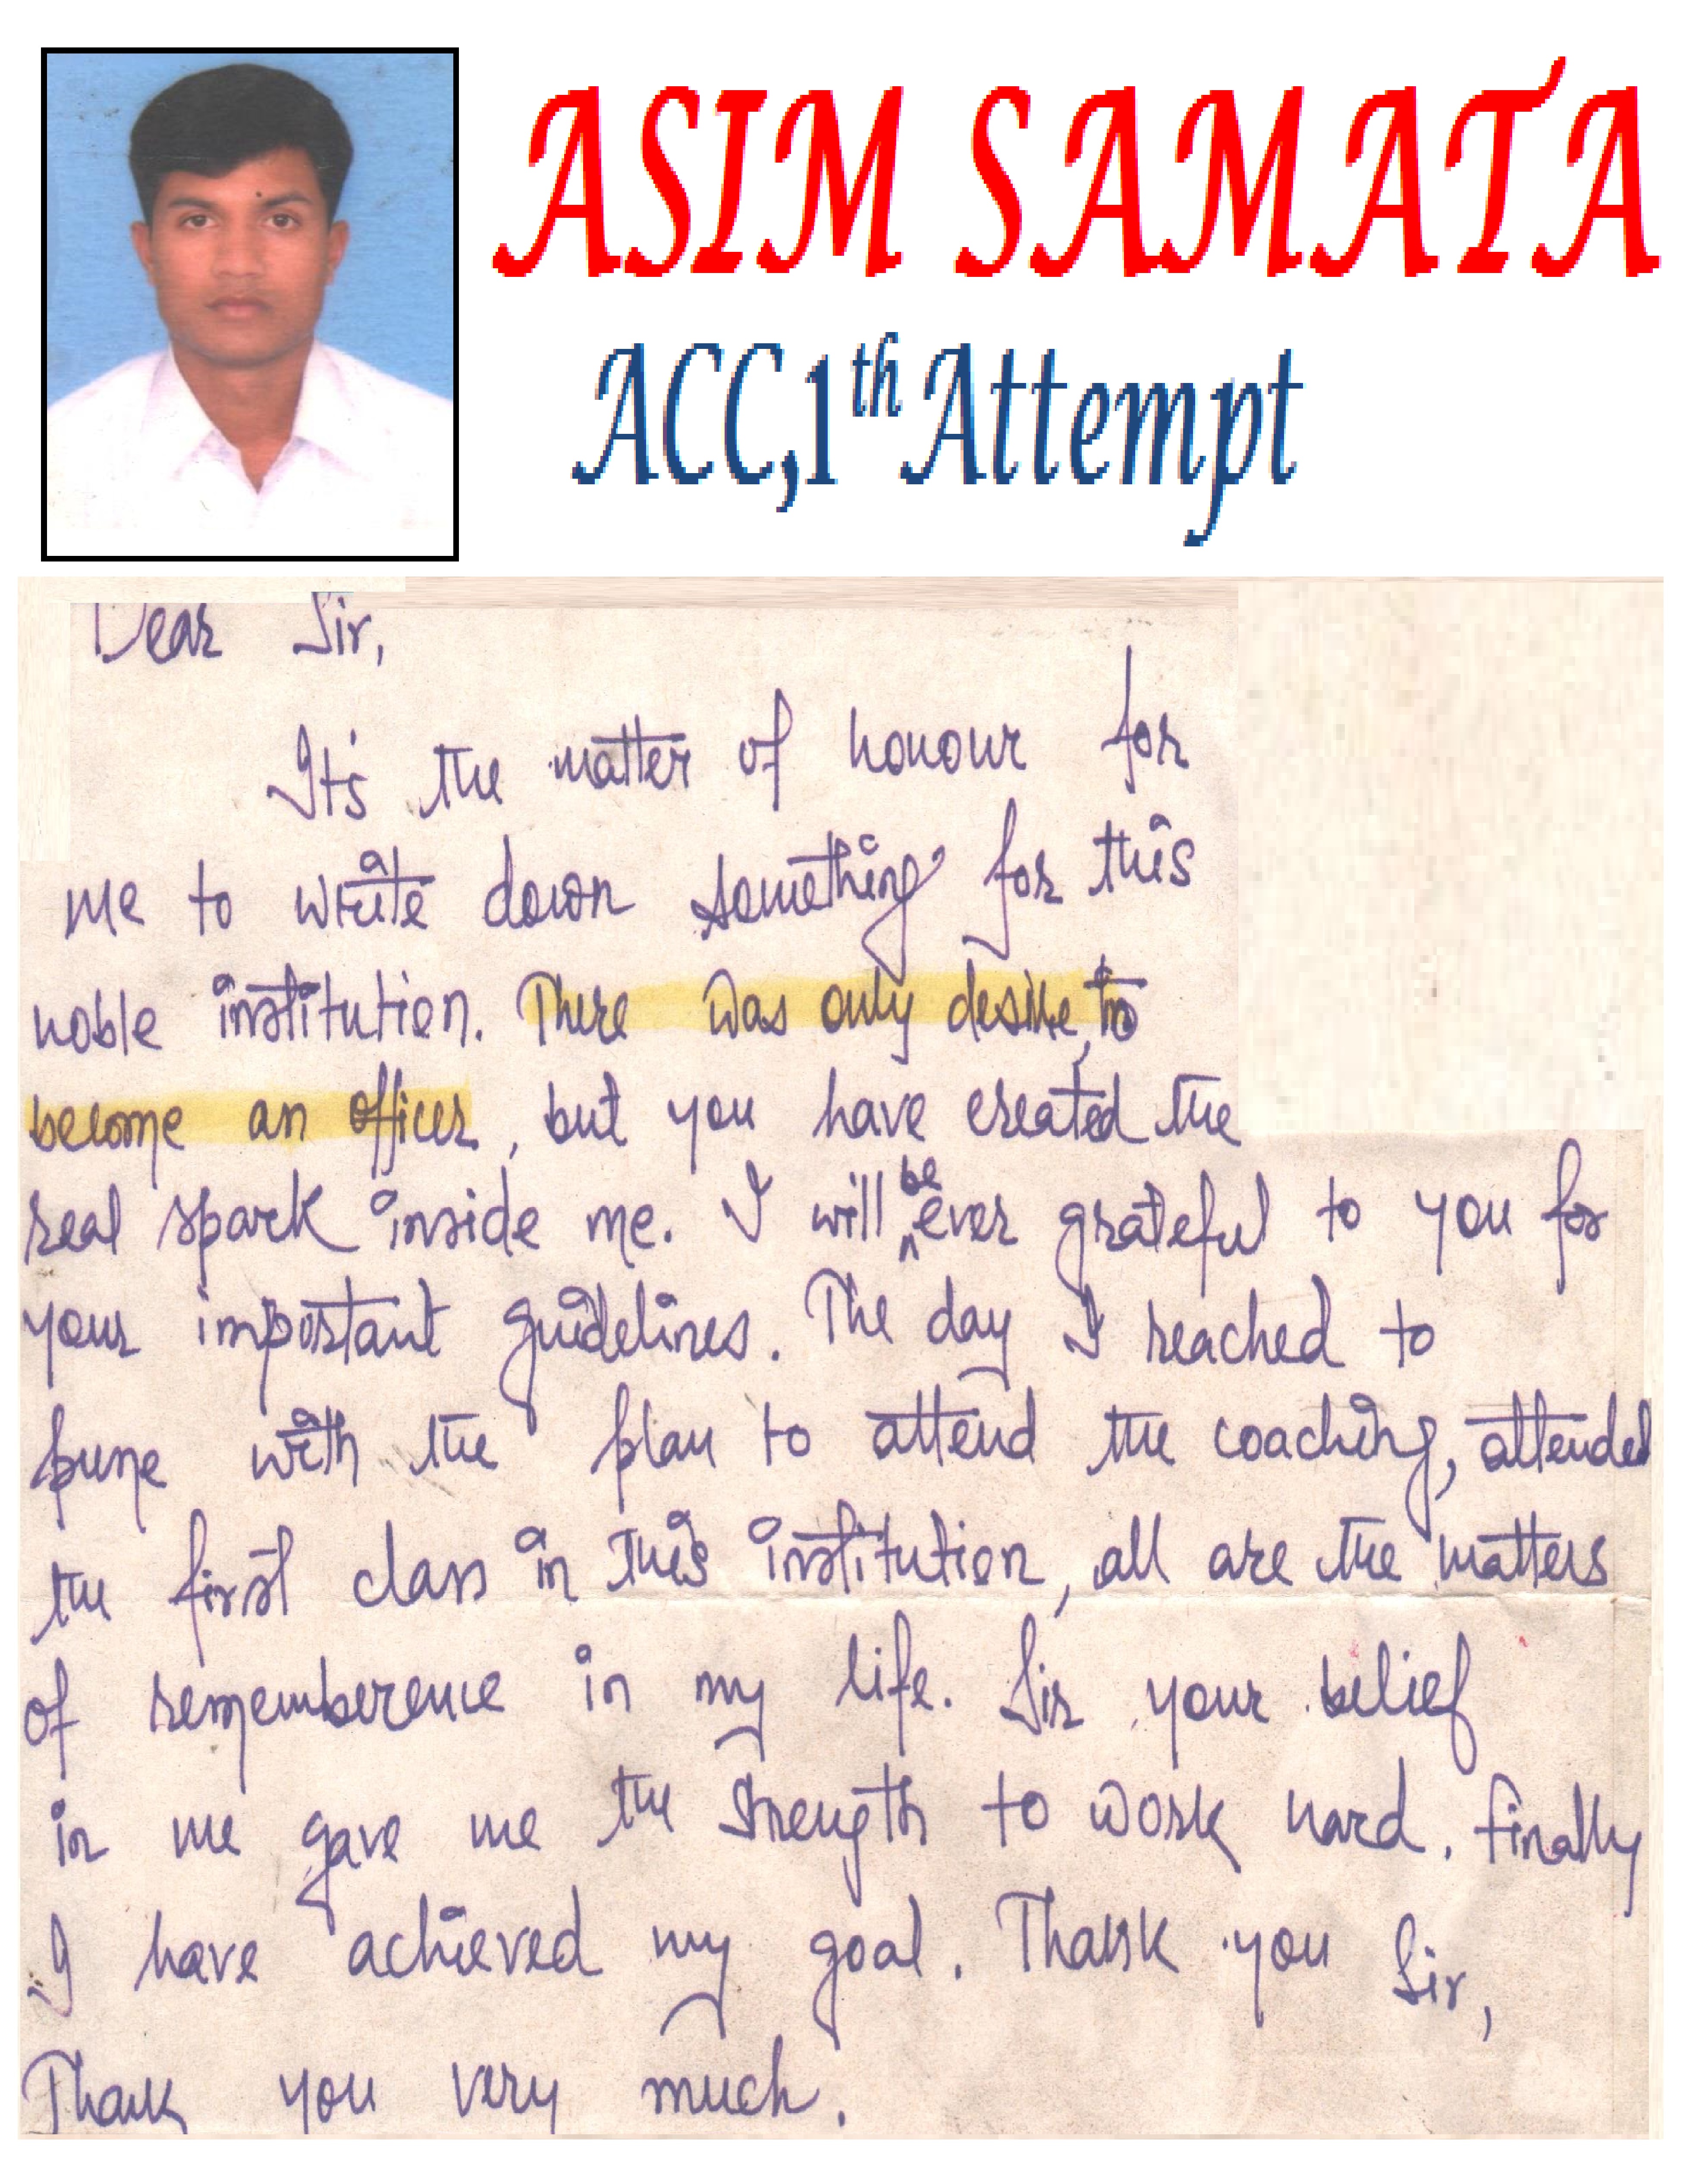 ASIM SAMATA
ACC,1th Attempt
Dear Sir,
It's the matter of honour for
me to write down something for this
noble institution. There was only desire, to
become an officer, but you have created the
real spark inside me. I will be ever grateful to you for
your important guidelines. The day I reached to
pune with the plan to attend the coaching, attended
the first class in this institution, all are the matters
of rememberence in my life. Sir your belief
in me gave me the strength to work hard. Finally
I have achieved my goal. Thank you Sir,
Thank you very much.